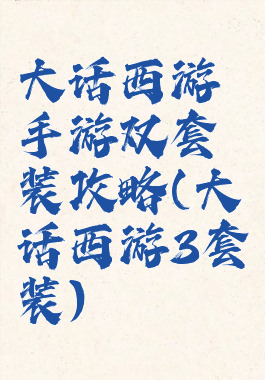 大话西游
手游双套
装攻略(大
话西游3套
装)